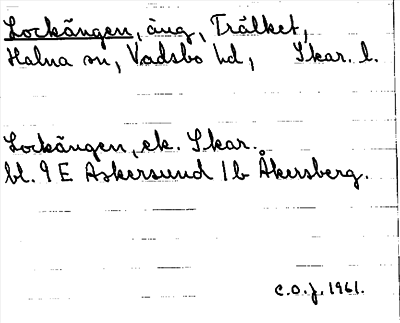 Lockängen, äng, Trälket,
Halna sn, Vadsbo hd, Skar. l.
Lockängen, ek. Skar.
bl. 9 E Askersund 1b Åkersberg.
C.O.J. 1961.